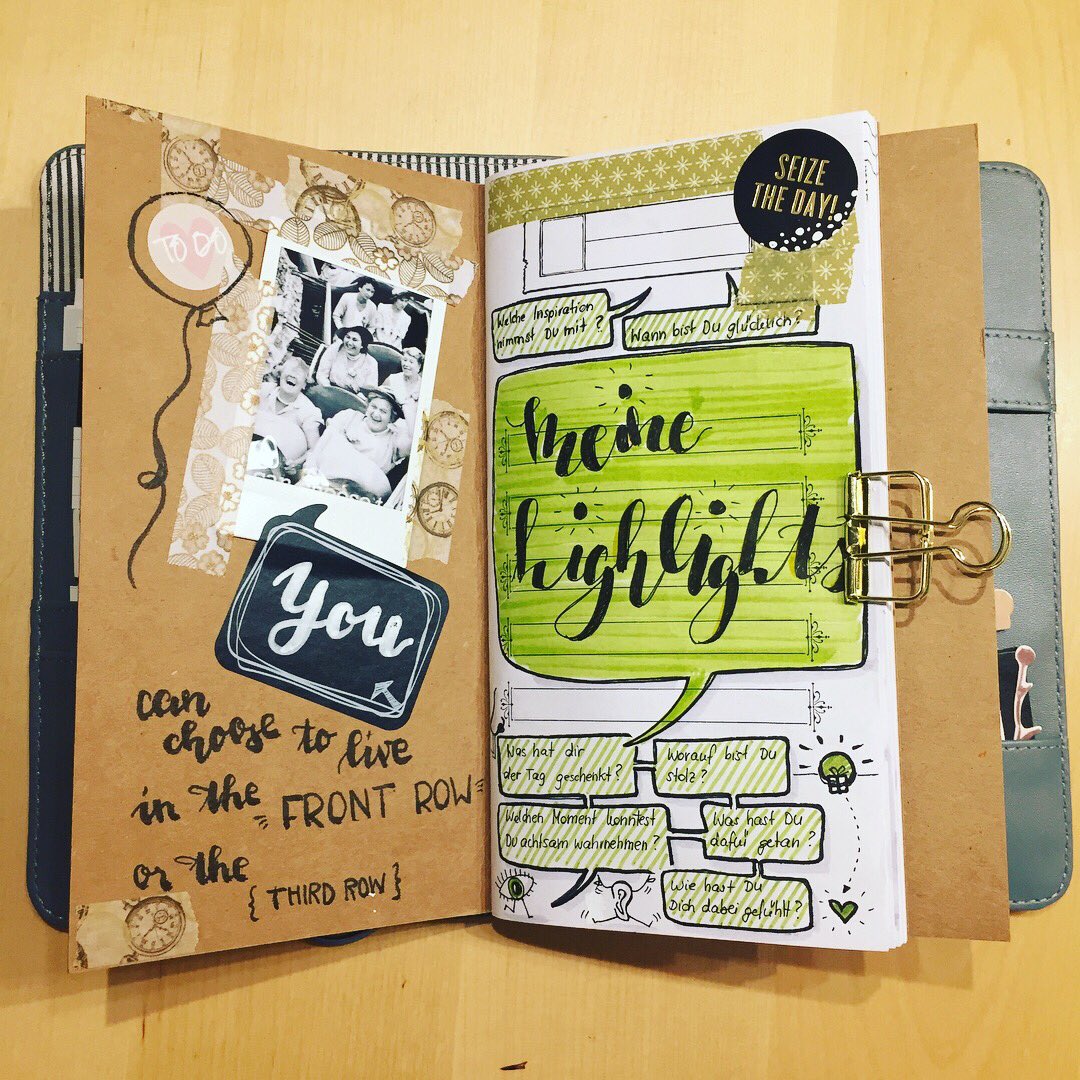 TO DO
You
can
choose to live
in the "FRONT ROW"
or the {THIRD ROW}
SEIZE
THE DAY!
Welche Inspiration
nimmst Du mit?
Wann bist Du glücklich?
meine
highlights
Was hat dir
der Tag geschenkt?
Worauf bist Du
stolz?
Welchen Moment konntest
Du achtsam wahrnehmen?
Was hast Du
dafür getan?
Wie hast Du
Dich dabei gefühlt?